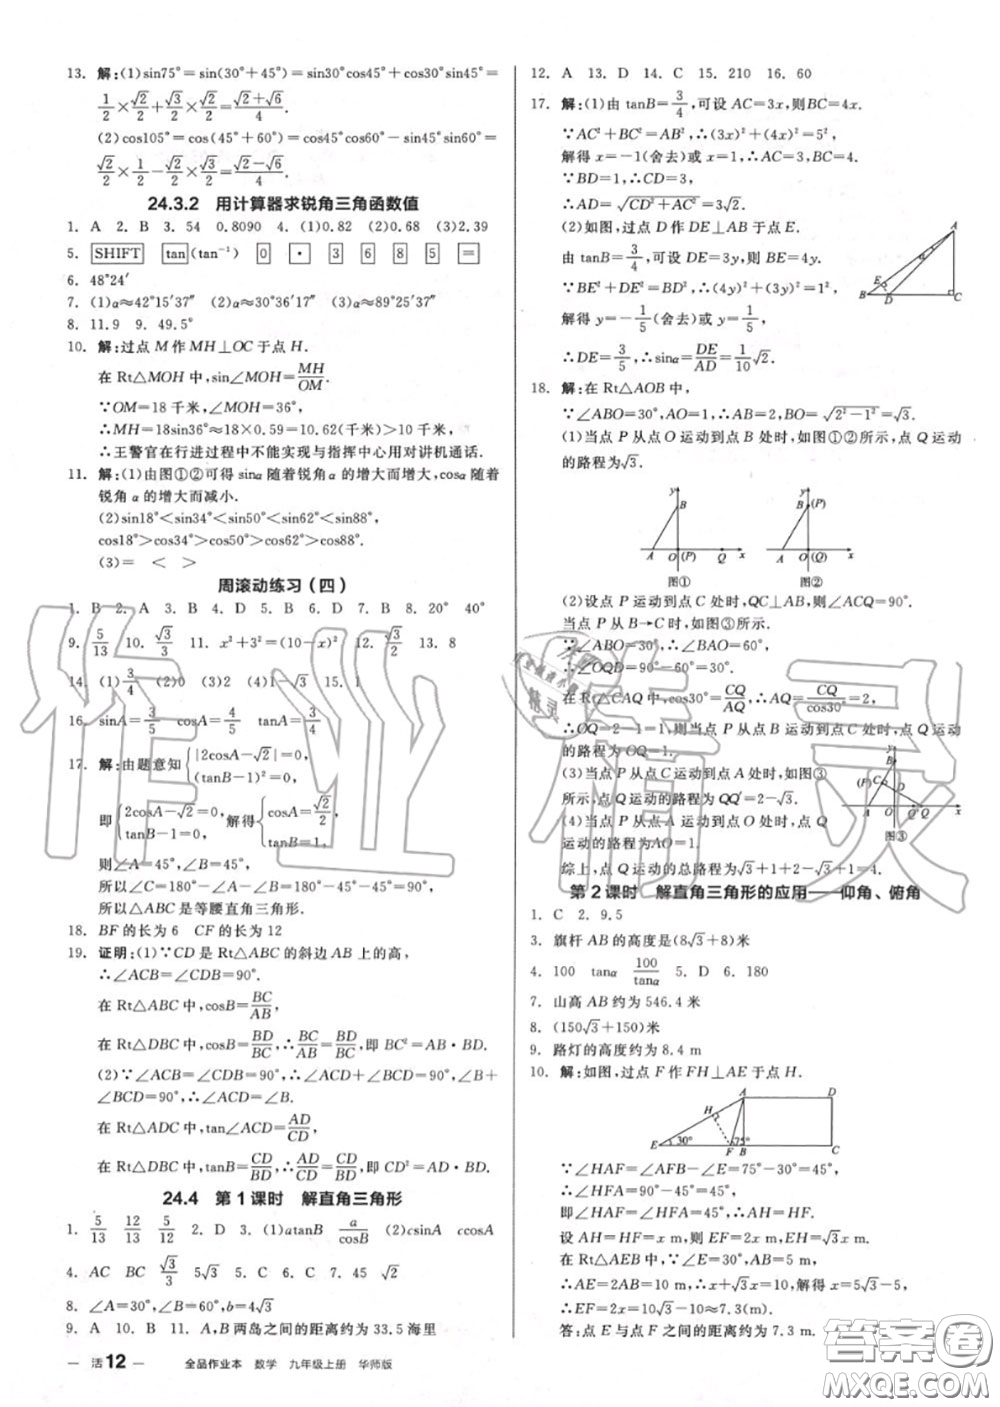 13. 解:(1)sin75°=sin(30°+45°)=sin30°cos45°+cos30°sin45°=
1/2×√2/2+√3/2×√2/2=(√2+√6)/4.
(2)cos105°=cos(45°+60°)=cos45°cos60°-sin45°sin60°=
√2/2×1/2-√2/2×√3/2=(√2-√6)/4.
24.3.2 用计算器求锐角三角函数值
1. A 2. B 3. 54 0.8090 4. (1)0.42 (2)0.68 (3)2.39
5. SHIFT tan(tan⁻¹) 0 · 3 6 8 5 =
6. 48°24′
7. (1)α≈42°15′37″ (2)α≈28°19′17″ (3)α≈89°25′37″
8. 11.9 9. 49.5°
10. 解:过点 M 作 MH⊥OC 于点 H.
在 Rt△MOH 中,sin∠MOH=MH/OM.
∵OM=18 千米,∠MOH=36°,
∴MH=18sin36°≈18×0.59=10.62(千米)>10 千米,
∴王警官在行进过程中不能实现与指挥中心用对讲机通话.
11. 解:(1)由图①②可得 sinα 随着锐角α的增大而增大,cosα 随着
锐角 α 的增大而减小.
(2)sin18°<sin34°<sin50°<sin62°<sin88°,
cos18°>cos34°>cos50°>cos62°>cos88°.
(3)= < >
周滚动练习(四)
1. B 2. A 3. B 4. D 5. B 6. D 7. B 8. 20° 40°
9. 5/13 10. √3/3 11. x²+3²=(10-x)² 12. √3/2 13. 8
14. (1)3/4 (2)0 (3)2 (4)-1 15. 1
16. sinA=3/5 cosA=4/5 tanA=3/4
17. 解:由题意知{|2cosA-√2|=0, (tanB-1)²=0,
即{2cosA-√2=0, tanB-1=0, 解得{cosA=√2/2, tanB=1.
则∠A=45°,∠B=45°,
所以∠C=180°-∠A-∠B=180°-45°-45°=90°,
所以△ABC 是等腰直角三角形.
18. BF 的长为 6 CF 的长为 12
19. 证明:(1)∵CD 是 Rt△ABC 的斜边 AB 上的高,
∴∠ACB=∠CDB=90°.
在 Rt△ABC 中,cosB=BC/AB,
在 Rt△DBC 中,cosB=BD/BC,∴BC/AB=BD/BC,即 BC²=AB·BD.
(2)∵∠ACB=∠CDB=90°,∴∠ACD+∠BCD=90°,∠B+
∠BCD=90°,∴∠ACD=∠B.
在 Rt△ADC 中,tan∠ACD=AD/CD,
在 Rt△DBC 中,tanB=CD/BD,∴AD/CD=CD/BD,即 CD²=AD·BD.
24.4 第 1 课时 解直角三角形
1. 5/13 12/13 5/12 2. D 3. (1)atanB a/cosB (2)csinA ccosA
4. AC BC √3/3 5√3 5. C 6. C 7. 45 √2
8. ∠A=30°,∠B=60°,b=4√3
9. A 10. B 11. A,B 两岛之间的距离约为 33.5 海里
12. A 13. D 14. C 15. 210 16. 60
17. 解:(1)由 tanB=3/4,可设 AC=3x,则BC=4x.
∵AC²+BC²=AB²,∴(3x)²+(4x)²=5²,
解得 x=-1(舍去)或x=1,∴AC=3,BC=4.
∵BD=1,∴CD=3,
∴AD=√(CD²+AC²)=3√2.
(2)如图,过点 D 作 DE⊥AB 于点 E.
由 tanB=3/4,可设 DE=3y,则BE=4y.
∵BE²+DE²=BD²,∴(4y)²+(3y)²=1²,
解得 y=-1/5(舍去)或y=1/5,
∴DE=3/5,∴sinα=DE/AD=1/10√2.
A
α
E
B D C
18. 解:在 Rt△AOB 中,
∵∠ABO=30°,AO=1,∴AB=2,BO=√(2²-1²)=√3.
(1)当点 P 从点O运动到点 B 处时,如图①②所示,点 Q 运动
的路程为√3.
y B A O (P) Q x
y B (P) A O (Q) x
图① 图②
(2)设点 P 运动到点C 处时,QC⊥AB,则∠ACQ=90°.
当点P从B→C时,如图③所示.
∵∠ABO=30°,∴∠BAO=60°,
∴∠OQD=90°-60°=30°.
在 Rt△CAQ 中,cos30°=CQ/AQ,∴AQ=CQ/cos30°=2,
∴OQ=2-1=1,则当点 P 从点B 运动到点 C 处时,点 Q 运动
的路程为 OQ=1.
(3)当点P从点C运动到点A处时,如图③
所示,点 Q 运动的路程为 QQ′=2-√3.
(4)当点P从点A运动到点O处时,点 Q
运动的路程为AO=1.
y B C D A O Q x
图③
综上,点 Q 运动的总路程为√3+1+2-√3+1=4.
第 2 课时 解直角三角形的应用——仰角、俯角
1. C 2. 9.5
3. 旗杆 AB 的高度是(8√3+8)米
4. 100 tanα 100/tanα 5. D 6. 180
7. 山高 AB 约为 546.4 米
8. (150√3+150)米
9. 路灯的高度约为 8.4 m
10. 解:如图,过点 F 作 FH⊥AE 于点 H.
A D
H
E 30° F 75° B C
∵∠HAF=∠AFB-∠E=75°-30°=45°,
∴∠HFA=90°-45°=45°,
即∠HAF=∠HFA=45°,∴AH=HF.
设 AH=HF=x m,则 EF=2x m,EH=√3x m.
在 Rt△AEB 中,∵∠E=30°,AB=5 m,
∴AE=2AB=10 m,∴x+√3x=10,解得 x=5√3-5,
∴EF=2x=10√3-10≈7.3(m).
答:点 E 与点 F 之间的距离约为 7.3 m.
— 活 12 — 全品作业本 数学 九年级上册 华师版
作业精灵
答案圈
MXQE.COM